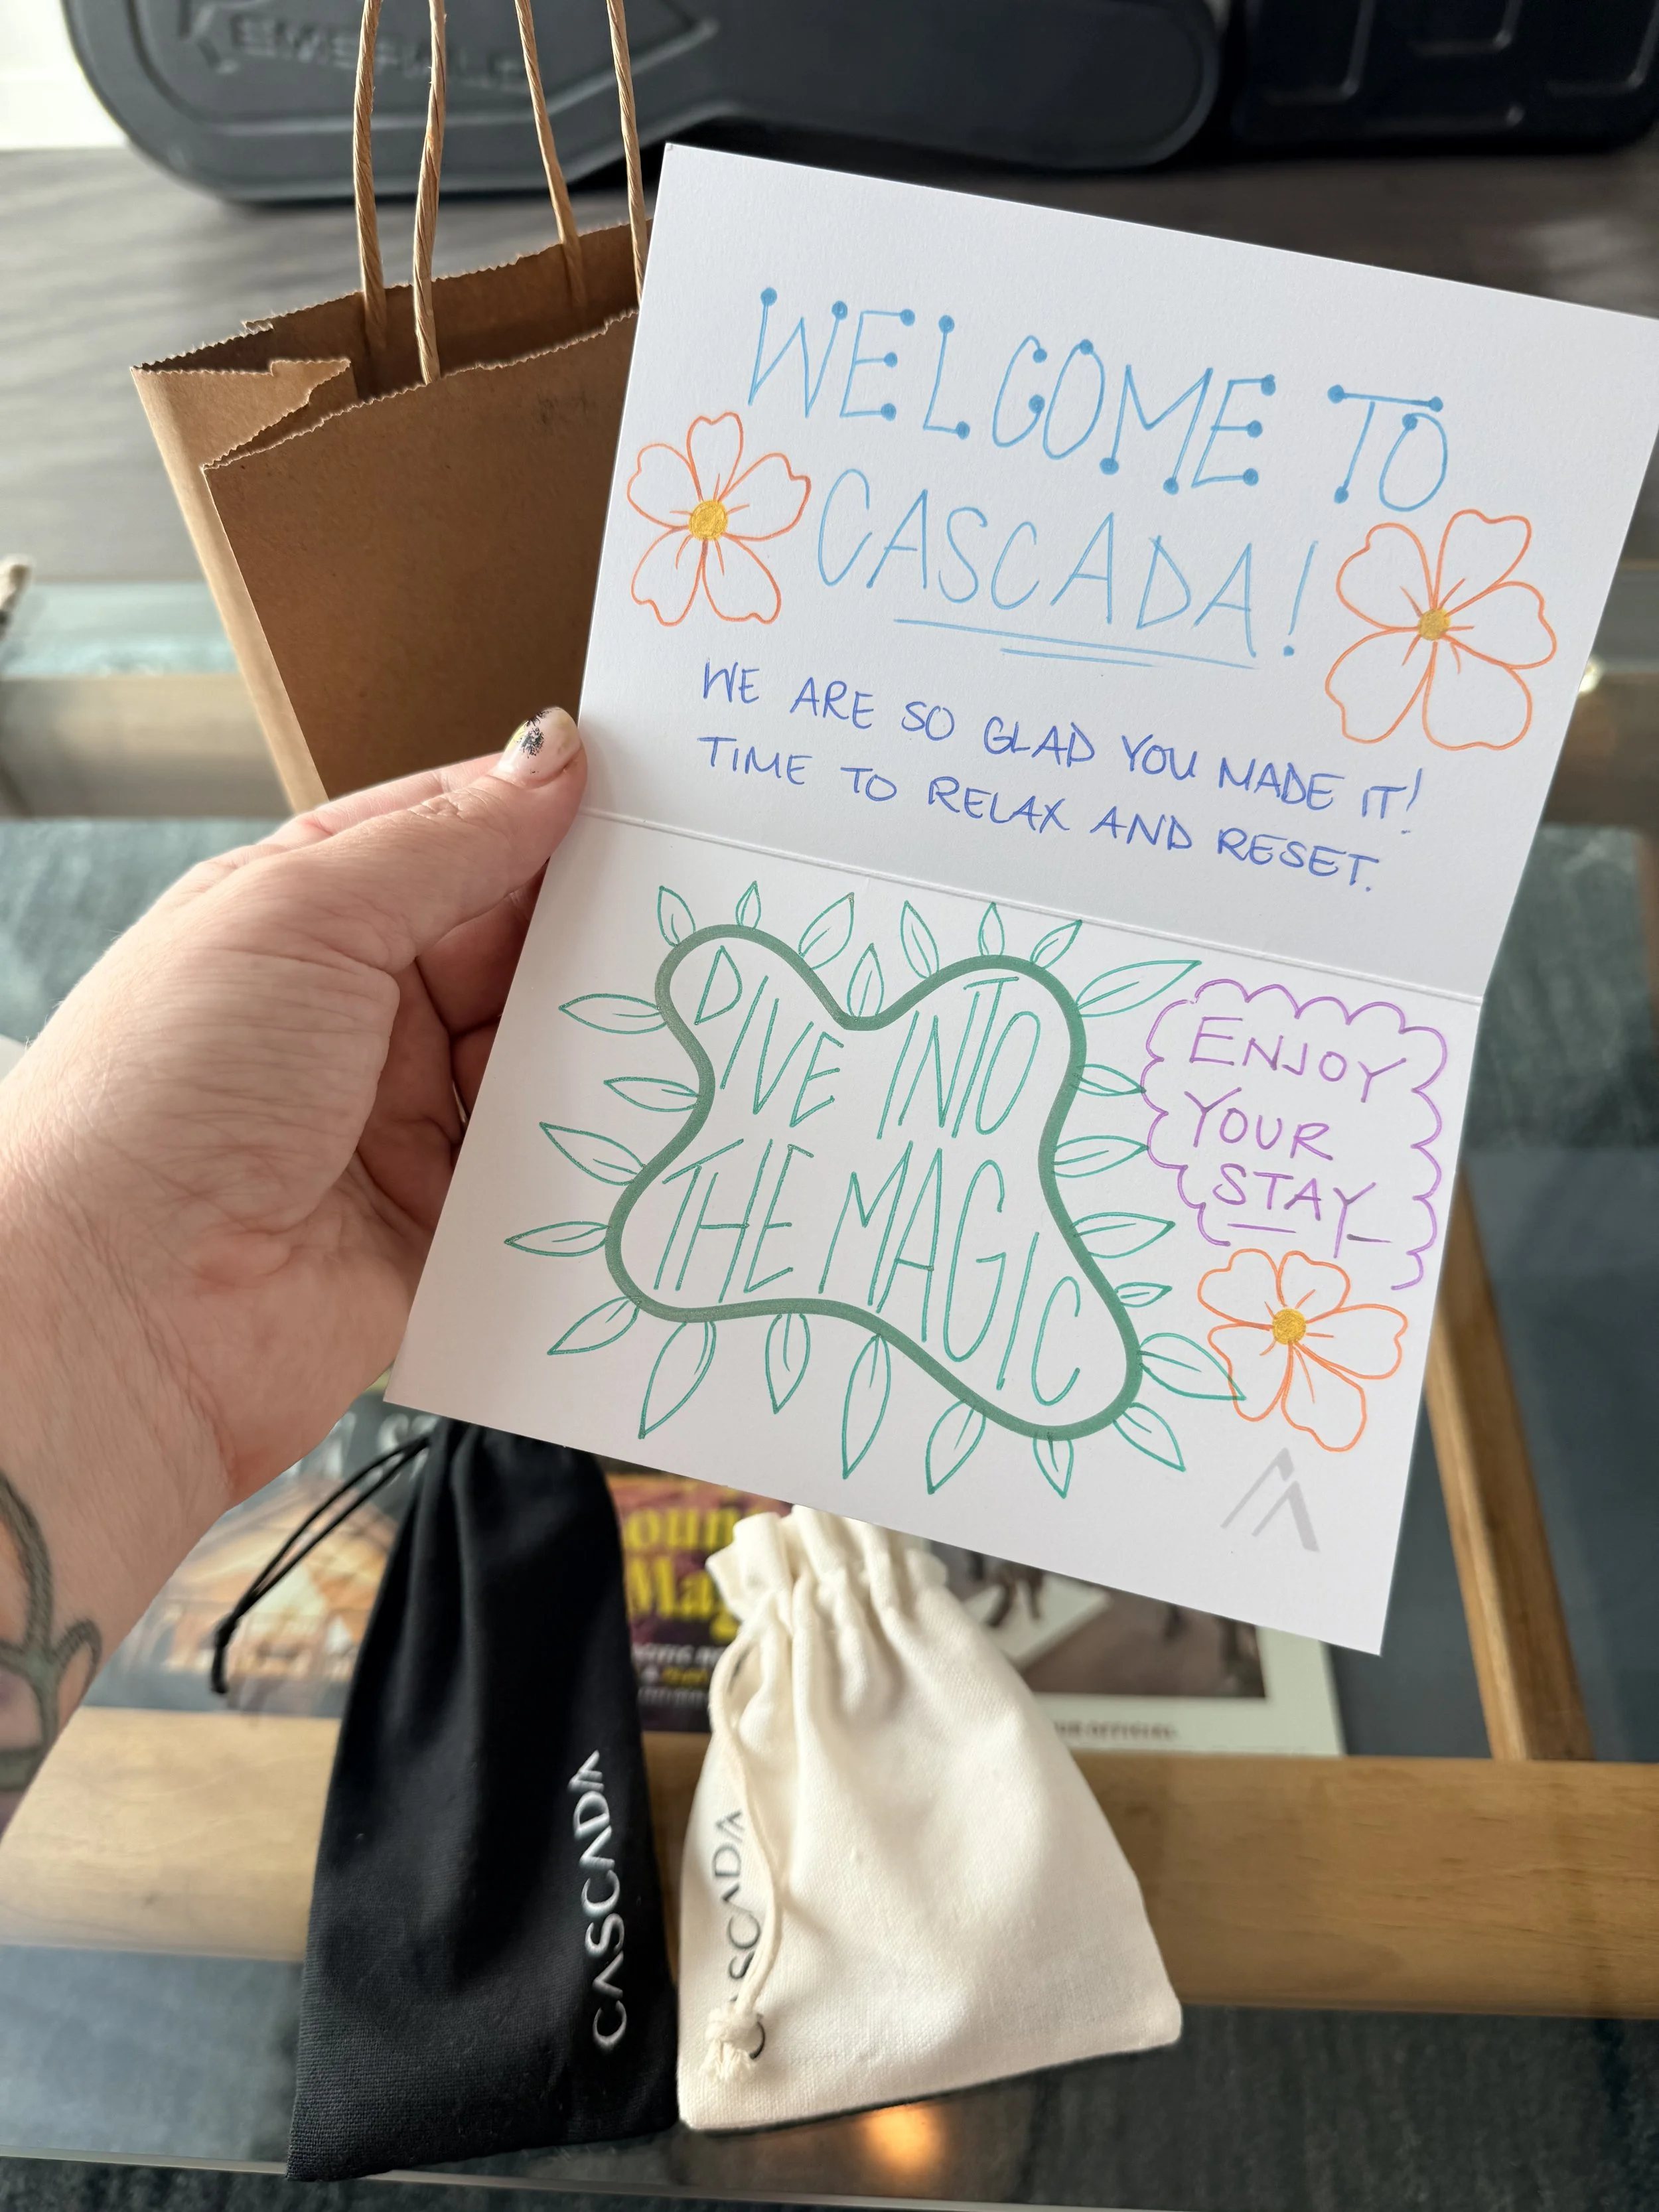 WELCOME TO
CASCADA!
WE ARE SO GLAD YOU MADE IT!
TIME TO RELAX AND RESET.
DIVE INTO
THE MAGIC
ENJOY
YOUR
STAY
CASCADA
CASCADA